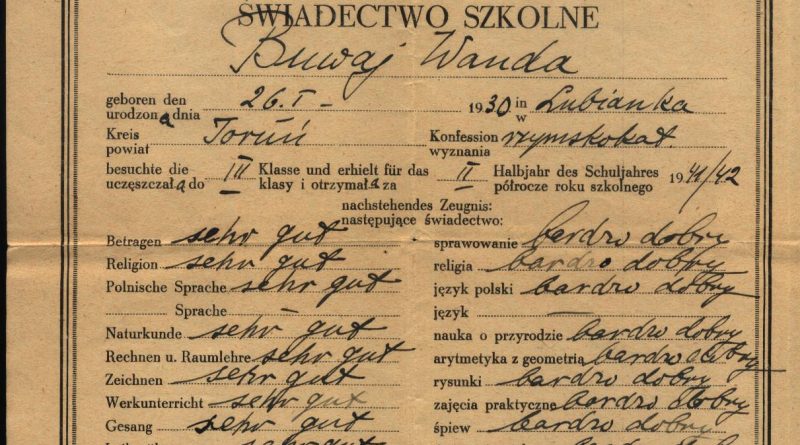 ŚWIADECTWO SZKOLNE
Buwaj Wanda
geboren den 26. I – 1930 in Lubianka
urodzona dnia w
Kreis Toruń Konfession rzymskokat.
powiat wyznania
besuchte die III Klasse und erhielt für das II Halbjahr des Schuljahres 1941/42
uczęszczała do klasy i otrzymała za półrocze roku szkolnego
nachstehendes Zeugnis:
następujące świadectwo:
Betragen sehr gut sprawowanie bardzo dobry
Religion sehr gut religia bardzo dobry
Polnische Sprache sehr gut język polski bardzo dobry
Sprache – język —
Naturkunde sehr gut nauka o przyrodzie bardzo dobry
Rechnen u. Raumlehre sehr gut arytmetyka z geometrią bardzo dobry
Zeichnen sehr gut rysunki bardzo dobry
Werkunterricht sehr gut zajęcia praktyczne bardzo dobry
Gesang sehr gut śpiew bardzo dobry
sehr gut bardzo dobry